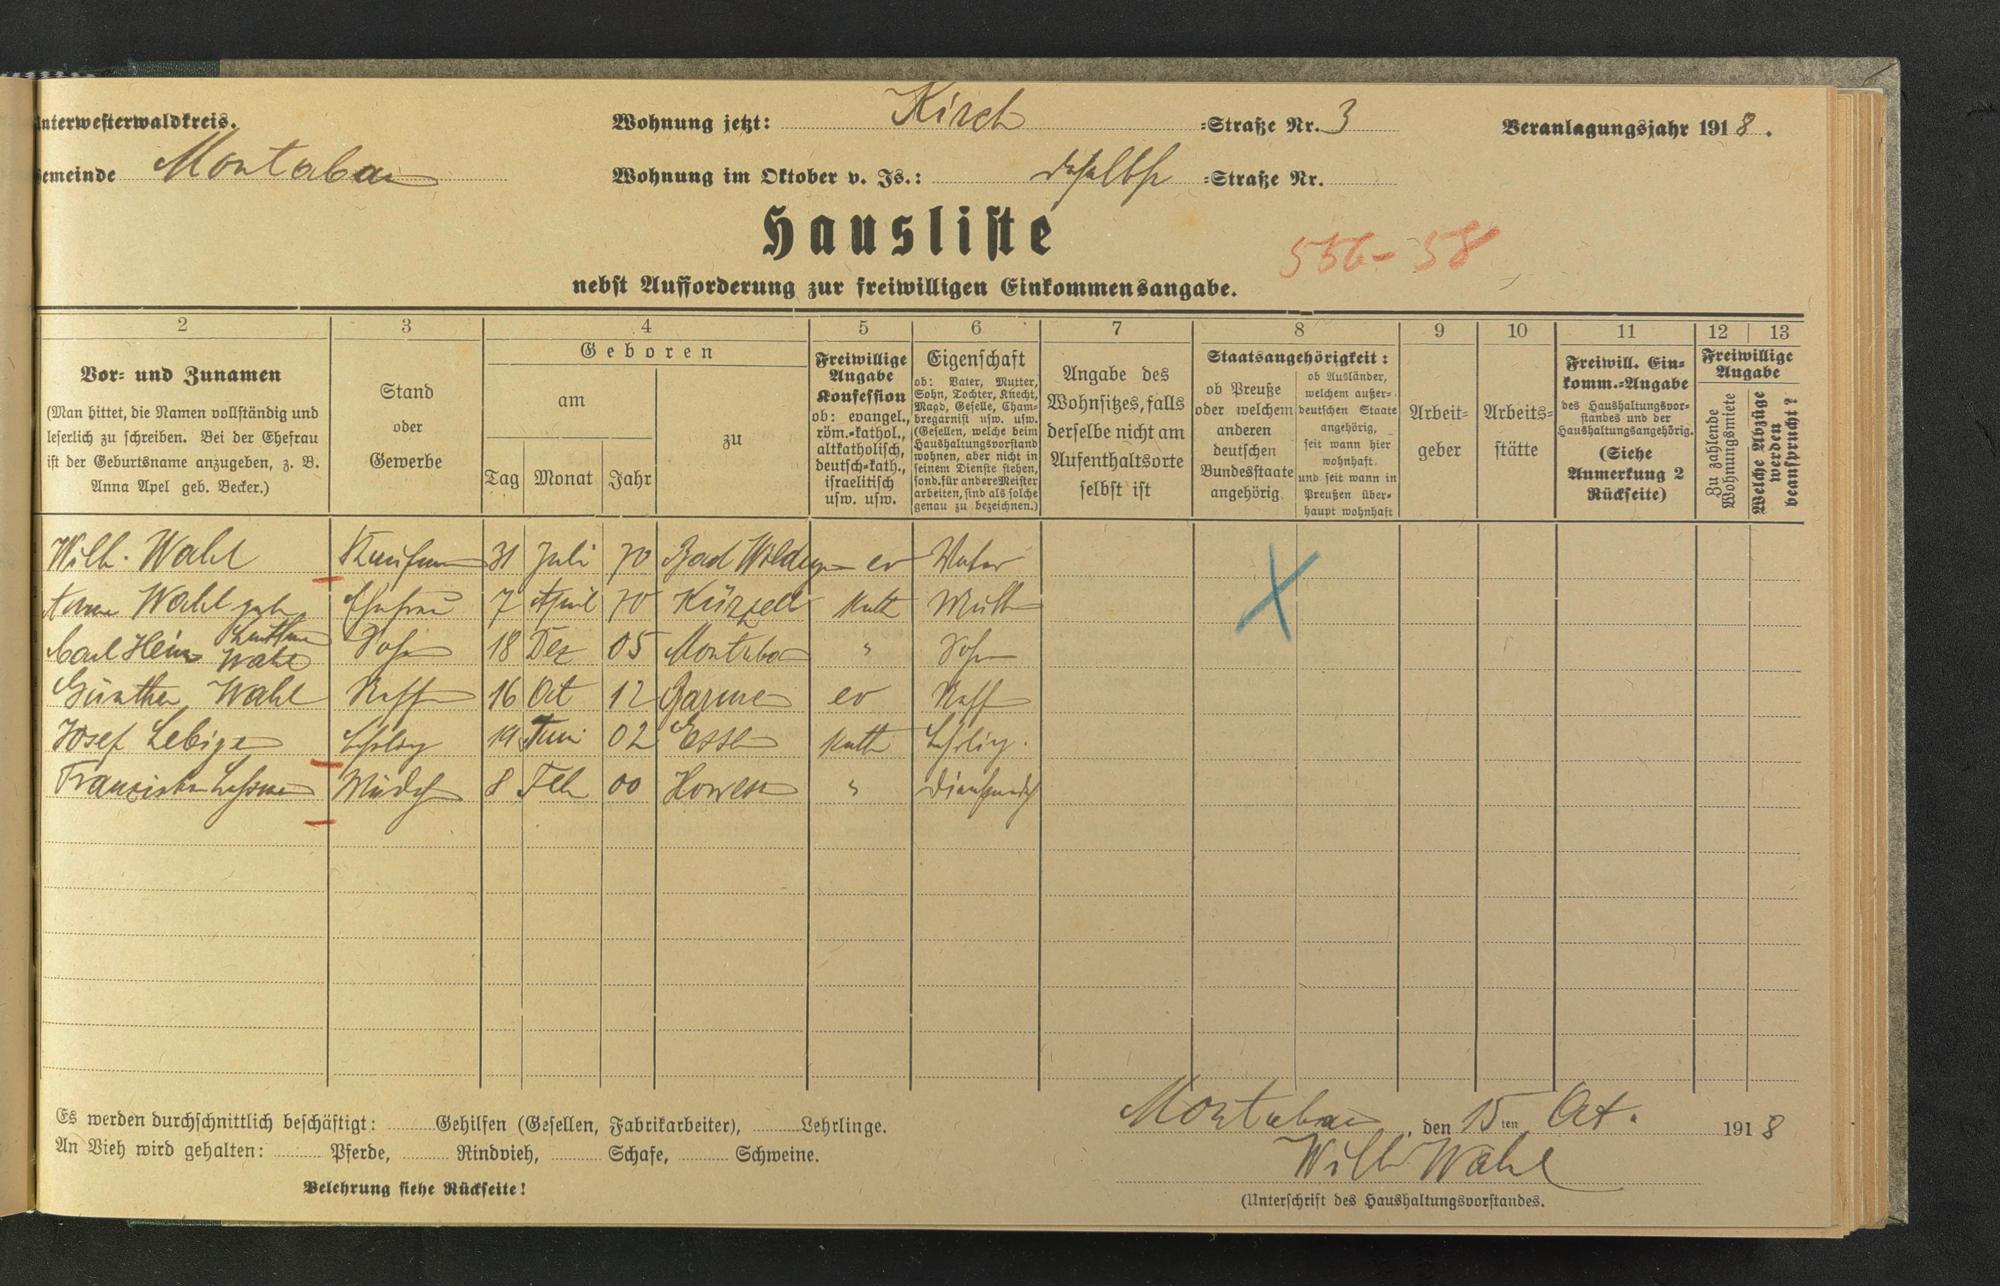 Unterwesterwaldkreis.
Wohnung jetzt: Kirch =Straße Nr. 3
Veranlagungsjahr 1918.
Gemeinde Montabaur
Wohnung im Oktober v. Js.: daselbst =Straße Nr.
Hausliste
556-58
nebst Aufforderung zur freiwilligen Einkommensangabe.
2 3 4 5 6 7 8 9 10 11 12 13
Vor= und Zunamen
(Man bittet, die Namen vollständig und
leserlich zu schreiben. Bei der Ehefrau
ist der Geburtsname anzugeben, z. B.
Anna Apel geb. Becker.)
Stand
oder
Gewerbe
Geboren
am
Tag Monat Jahr
zu
Freiwillige
Angabe
Konfession
ob: evangel.,
röm.=kathol.,
altkatholisch,
deutsch=kath.,
israelitisch
usw. usw.
Eigenschaft
ob: Vater, Mutter,
Sohn, Tochter, Knecht,
Magd, Geselle, Cham=
bregarnist usw. usw.
(Gesellen, welche beim
Haushaltungsvorstand
wohnen, aber nicht in
seinem Dienste stehen,
sond. für andere Meister
arbeiten, sind als solche
genau zu bezeichnen.)
Angabe des
Wohnsitzes, falls
derselbe nicht am
Aufenthaltsorte
selbst ist
Staatsangehörigkeit:
ob Preuße
oder welchem
anderen
deutschen
Bundesstaate
angehörig
ob Ausländer,
welchem außer=
deutschen Staate
angehörig,
seit wann hier
wohnhaft
und seit wann in
Preußen über=
haupt wohnhaft
Arbeit=
geber
Arbeits=
stätte
Freiwill. Ein=
komm.=Angabe
des Haushaltungsvor=
standes und der
Haushaltungsangehörig.
(Siehe
Anmerkung 2
Rückseite)
Freiwillige
Angabe
Zu zahlende
Wohnungsmiete
Welche Abzüge
werden
beansprucht?
Wilh. Wahl Kaufmann 31 Juli 70 Bad Wildungen ev Vater
Anna Wahl geb. Ehefrau 7 April 70 Kürzell kath Mutter
Carl Heinz Wahl Sohn 18 Dez 05 Montabaur " Sohn
Günther Wahl Neffe 16 Oct 12 Barmen ev Neffe
Josef Lebigen Lehrling 19 Juni 02 Essen kath Lehrling.
Franziska Mädch 8 Feb 00 " Dienstmädch
Es werden durchschnittlich beschäftigt: Gehilfen (Gesellen, Fabrikarbeiter), Lehrlinge.
An Vieh wird gehalten: Pferde, Rindvieh, Schafe, Schweine.
Belehrung siehe Rückseite!
Montabaur, den 15ten Oct. 1918
Wilh Wahl
(Unterschrift des Haushaltungsvorstandes.